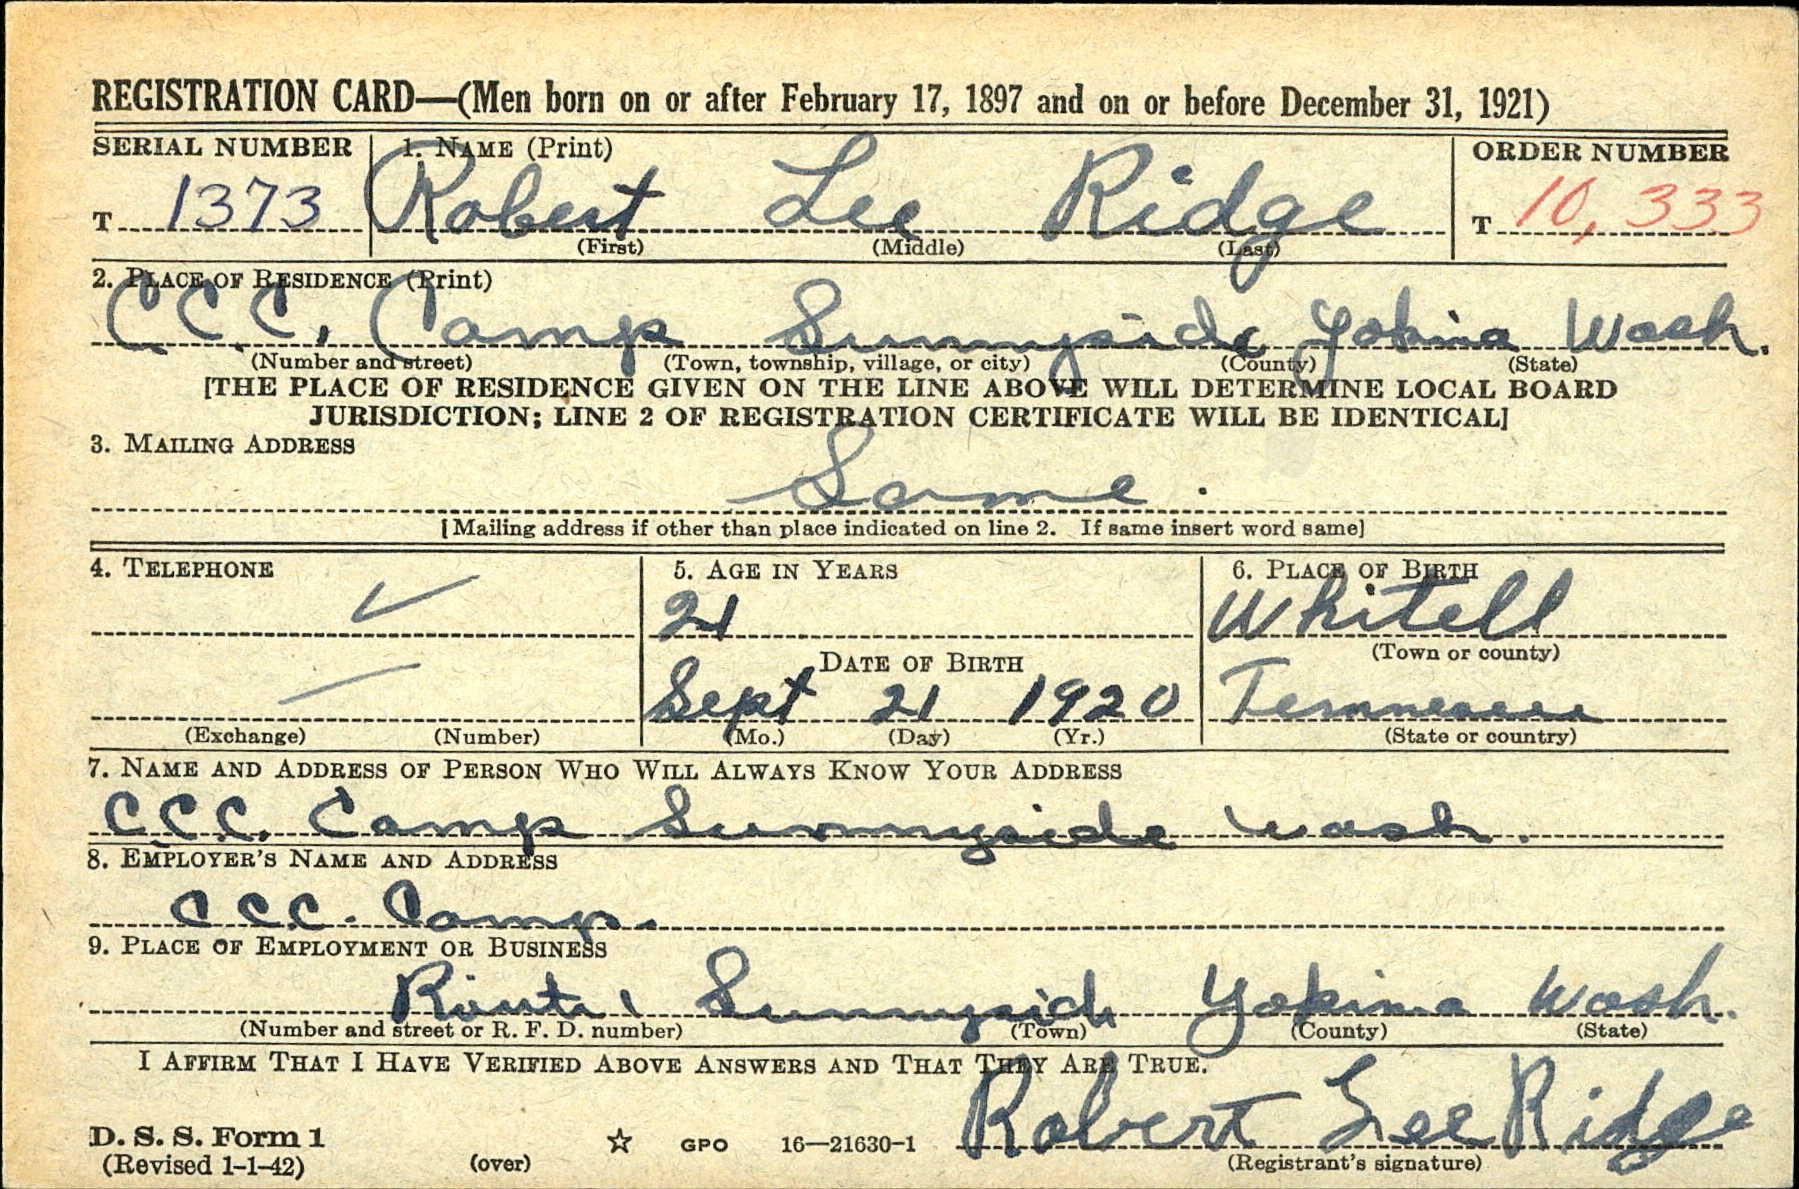 REGISTRATION CARD—(Men born on or after February 17, 1897 and on or before December 31, 1921)
SERIAL NUMBER 1. NAME (Print) ORDER NUMBER
T 1373 Robert Lee Ridge T 10,333
(First) (Middle) (Last)
2. PLACE OF RESIDENCE (Print)
C.C.C. Camp Sunnyside Yakima Wash.
(Number and street) (Town, township, village, or city) (County) (State)
[THE PLACE OF RESIDENCE GIVEN ON THE LINE ABOVE WILL DETERMINE LOCAL BOARD
JURISDICTION; LINE 2 OF REGISTRATION CERTIFICATE WILL BE IDENTICAL]
3. MAILING ADDRESS
Same.
[Mailing address if other than place indicated on line 2. If same insert word same]
4. TELEPHONE 5. AGE IN YEARS 6. PLACE OF BIRTH
21 Whitell
DATE OF BIRTH (Town or county)
Sept 21 1920 Tennessee
(Exchange) (Number) (Mo.) (Day) (Yr.) (State or country)
7. NAME AND ADDRESS OF PERSON WHO WILL ALWAYS KNOW YOUR ADDRESS
C.C.C. Camp Sunnyside Wash.
8. EMPLOYER'S NAME AND ADDRESS
C.C.C. Camp.
9. PLACE OF EMPLOYMENT OR BUSINESS
1 Sunnyside Yakima Wash.
(Number and street or R. F. D. number) (Town) (County) (State)
I AFFIRM THAT I HAVE VERIFIED ABOVE ANSWERS AND THAT THEY ARE TRUE.
Robert Lee Ridge
D. S. S. Form 1 GPO 16—21630-1
(Revised 1-1-42) (over) (Registrant's signature)